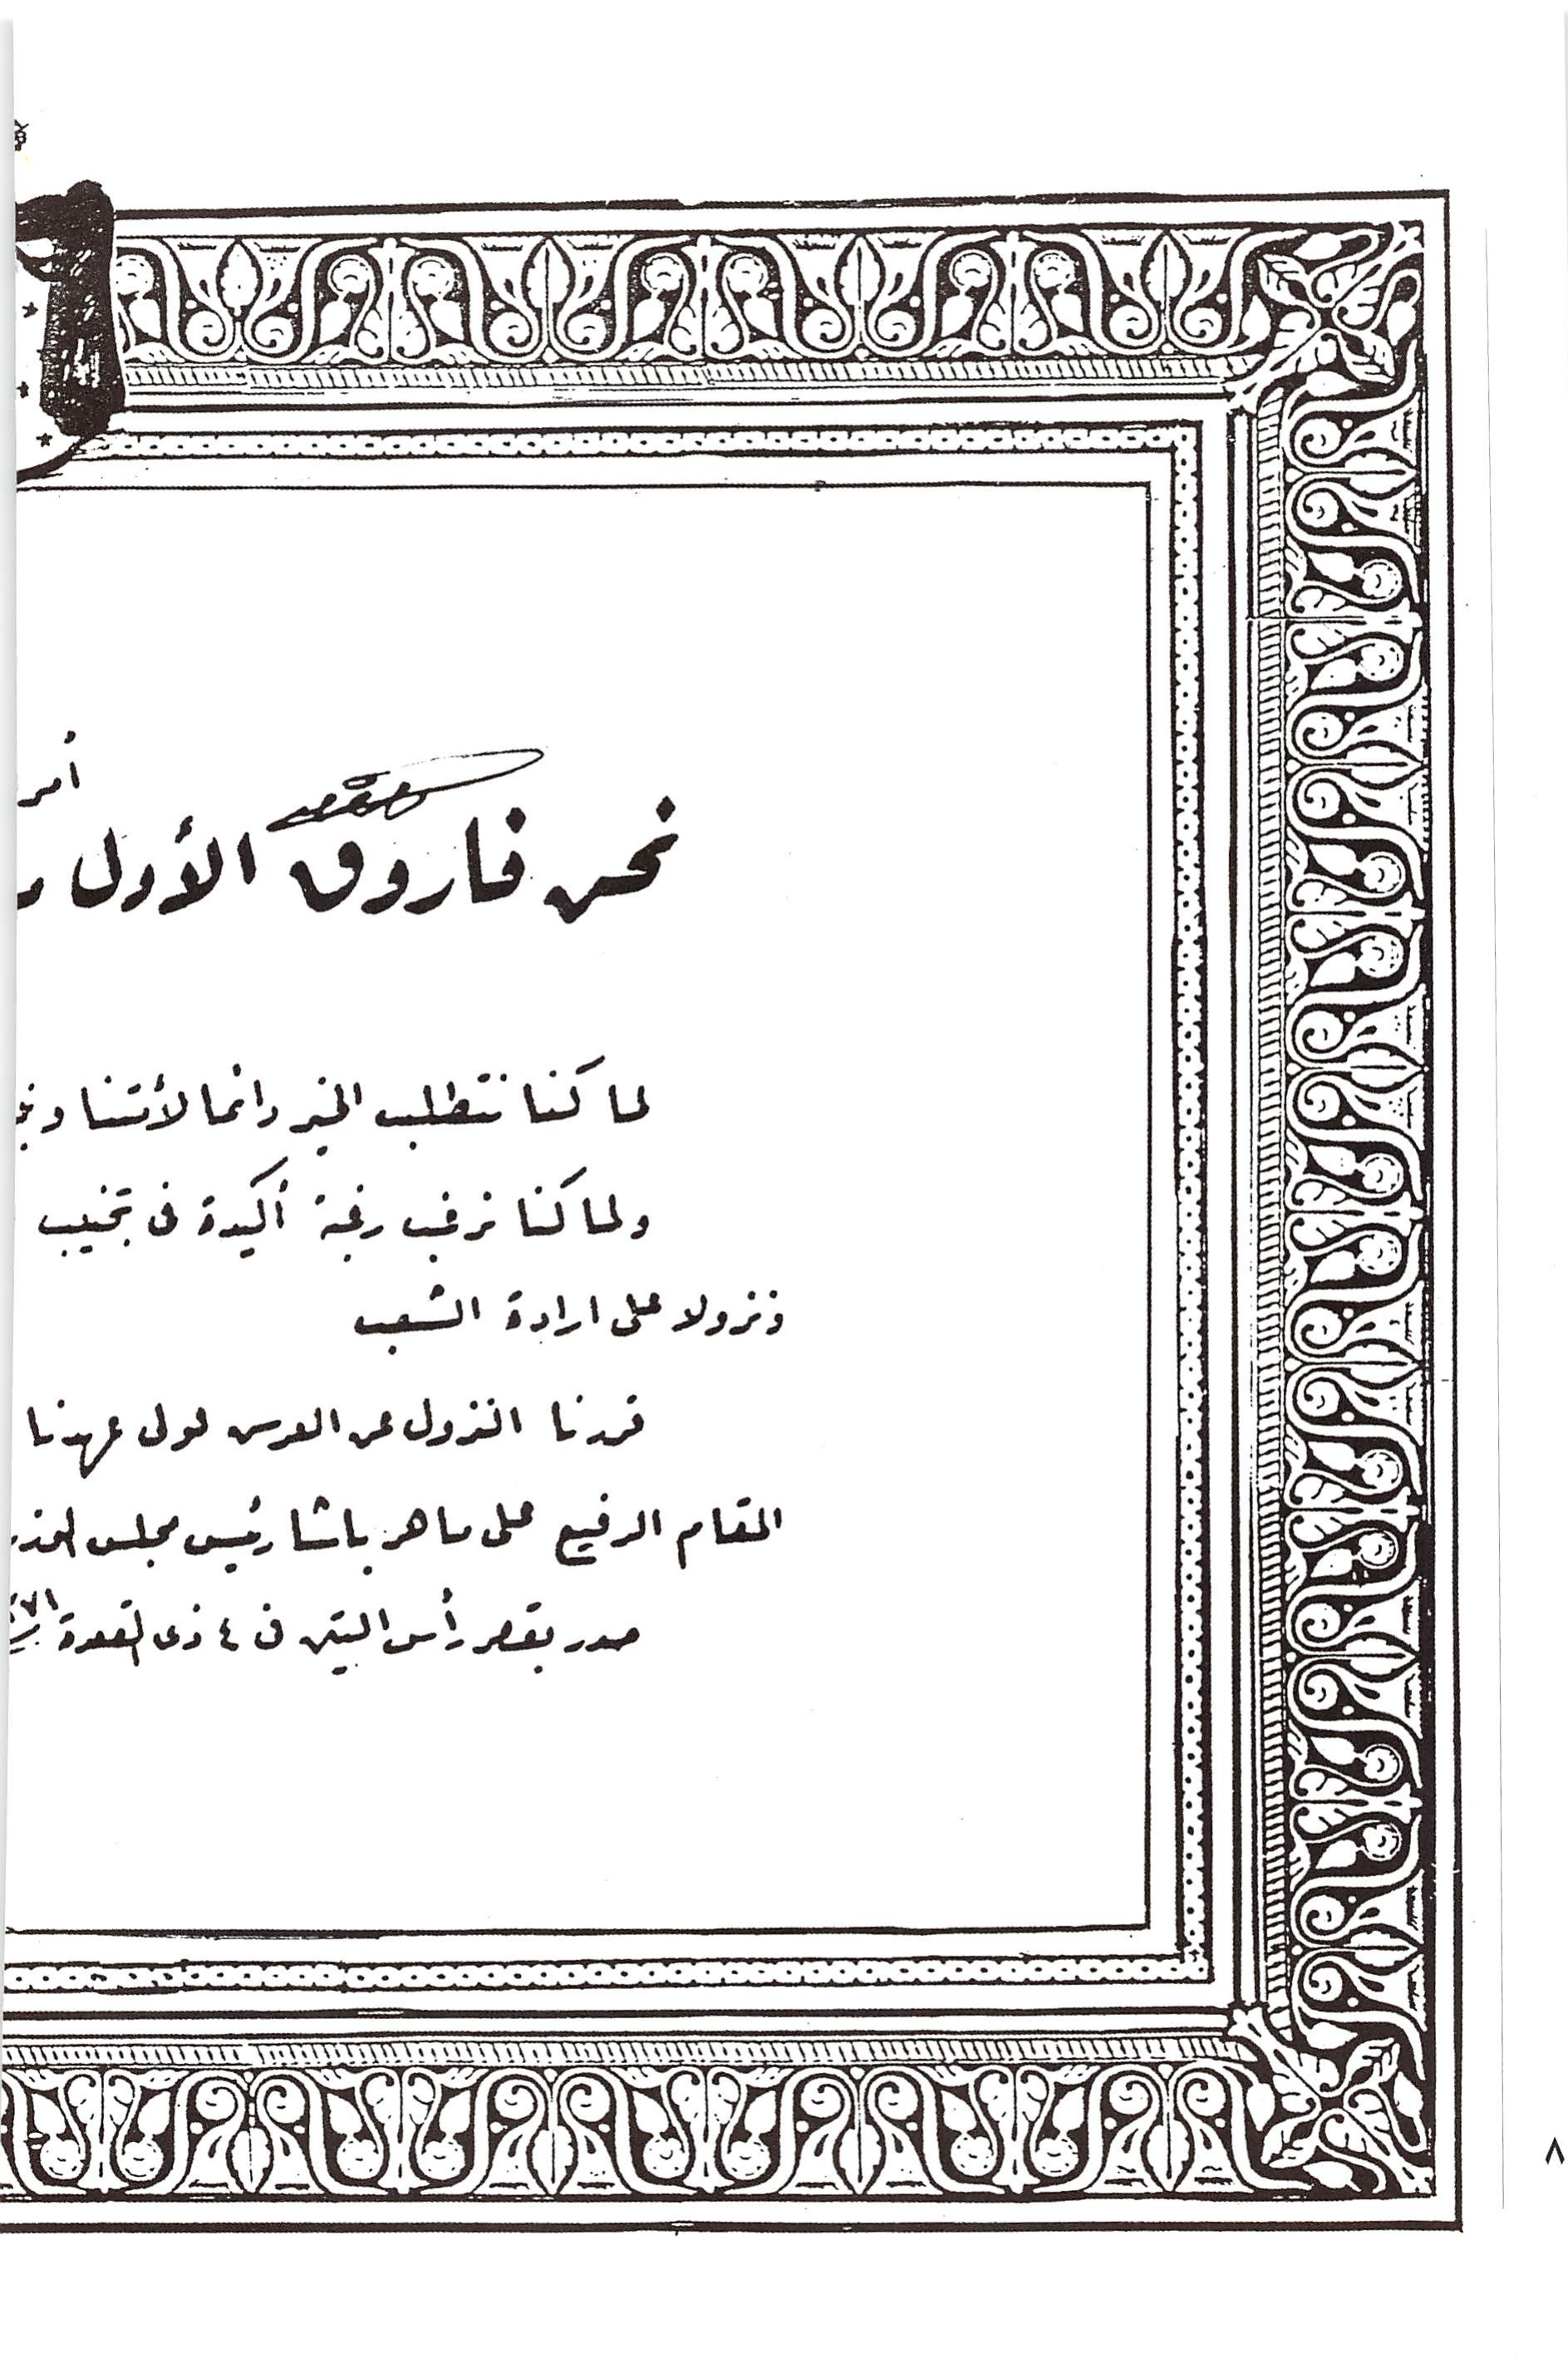 أمر
نحن فاروق الأول
لما كنا نتطلب الخير دائما لأمتنا
ولما كنا نرغب رغبة أكيدة فى تجنيب
ونزولا على ارادة الشعب
قررنا النزول عن العرش لولى عهدنا
المقام الرفيع على ماهر باشا رئيس مجلس
صدر بقصر رأس التين فى ٤ ذى القعدة
٨